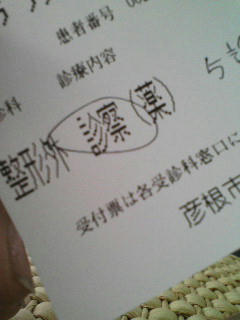 患者番号
診療内容
診科
整形外 診察 (薬)
受付票は各受診科窓口に
彦根市